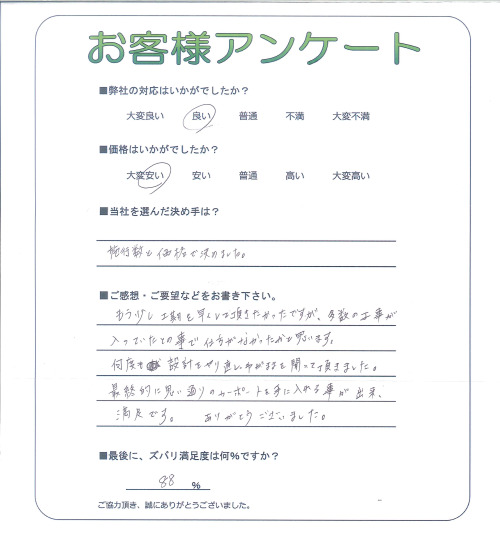 お客様アンケート
■弊社の対応はいかがでしたか？
大変良い 良い 普通 不満 大変不満
■価格はいかがでしたか？
大変安い 安い 普通 高い 大変高い
■当社を選んだ決め手は？
施行数と価格で決めました。
■ご感想・ご要望などをお書き下さい。
もう少し工期を早くして頂きたかったですが、多数の工事が
入っていたとの事で仕方がなかったかと思います。
何度も設計をやり直し、わがままを聞って頂きました。
最終的に思い通りのカーポートを手に入れる事が出来、
満足です。 ありがとうございました。
■最後に、ズバリ満足度は何%ですか？
88 %
ご協力頂き、誠にありがとうございました。